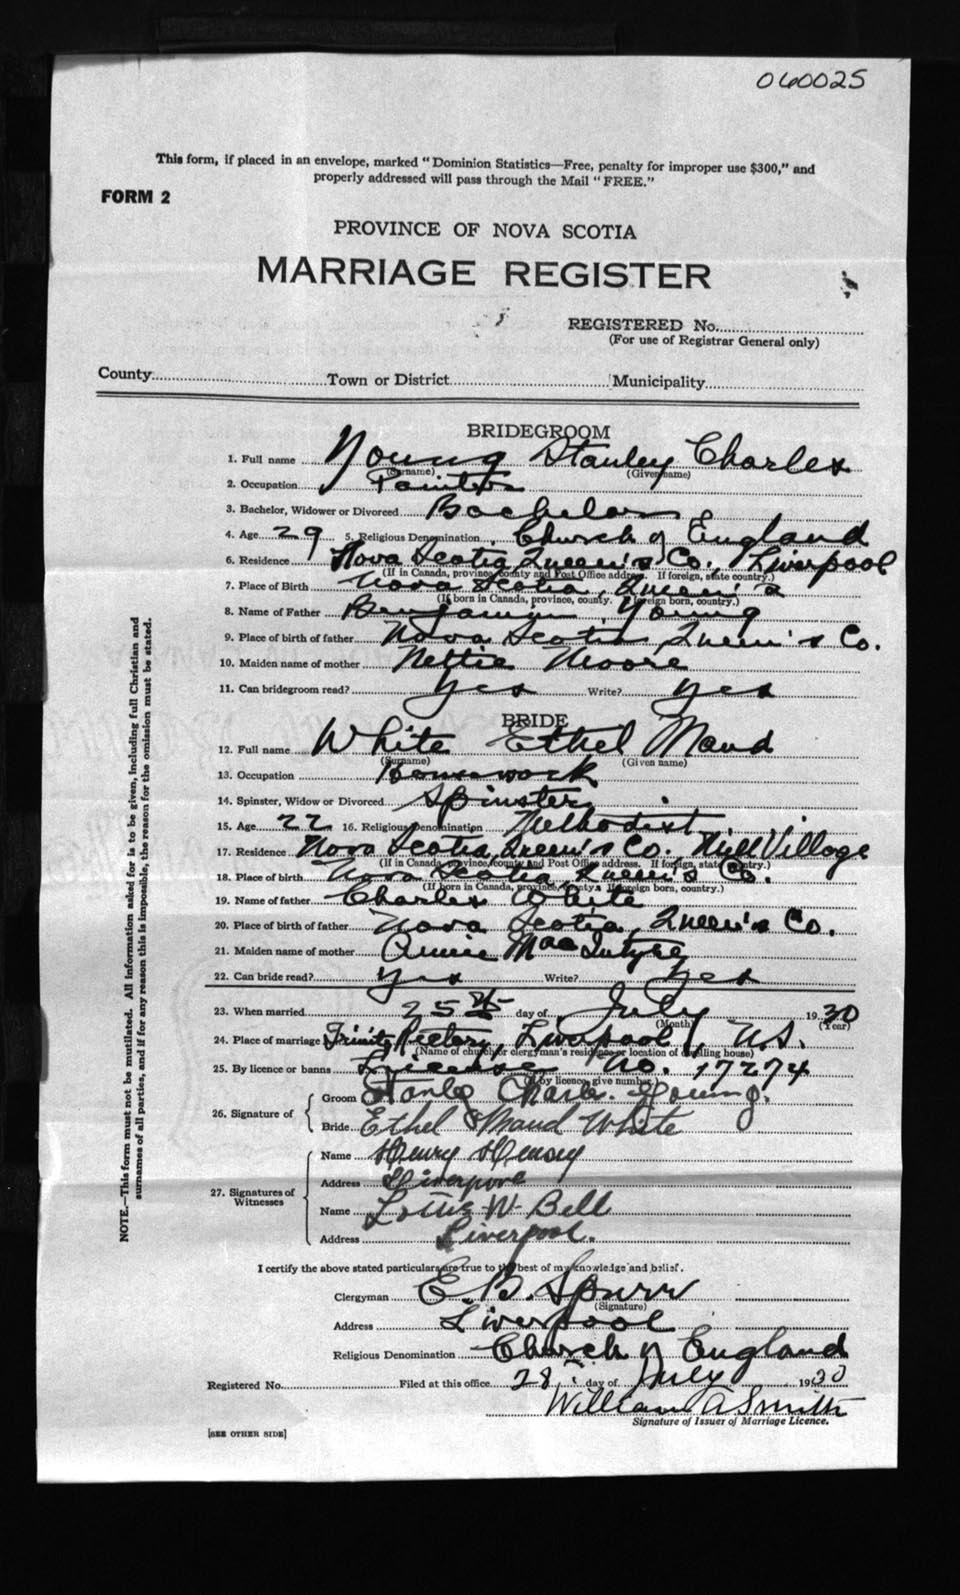 060025
This form, if placed in an envelope, marked "Dominion Statistics—Free, penalty for improper use $300," and
properly addressed will pass through the Mail "FREE."
FORM 2
PROVINCE OF NOVA SCOTIA
MARRIAGE REGISTER
REGISTERED No.
(For use of Registrar General only)
County Town or District Municipality
BRIDEGROOM
1. Full name Young Stanley Charles
(Surname) (Given name)
2. Occupation Painter
3. Bachelor, Widower or Divorced Bachelor
4. Age 29 5. Religious Denomination Church of England
6. Residence Nova Scotia, Queen's Co., Liverpool
(If in Canada, province, county and Post Office address. If foreign, state country.)
7. Place of Birth Nova Scotia, Queen's
(If born in Canada, province, county. If foreign born, country.)
8. Name of Father Benjamin Young
9. Place of birth of father Nova Scotia Queen's Co.
10. Maiden name of mother Nettie Moore
11. Can bridegroom read? yes Write? yes
BRIDE
12. Full name White Ethel Maud
(Surname) (Given name)
13. Occupation Housework
14. Spinster, Widow or Divorced Spinster
15. Age 22 16. Religious Denomination Methodist
17. Residence Nova Scotia, Queen's Co. Mill Village
(If in Canada, province, county and Post Office address. If foreign, state country.)
18. Place of birth Nova Scotia, Queen's Co.
(If born in Canada, province, county. If foreign born, country.)
19. Name of father Charles White
20. Place of birth of father Nova Scotia, Queen's Co.
21. Maiden name of mother Annie MacIntyre
22. Can bride read? yes Write? yes
23. When married 25th day of July 1930
(Month) (Year)
24. Place of marriage Trinity Rectory, Liverpool, N.S.
(Name of church or clergyman's residence or location of dwelling house)
25. By licence or banns License No. 17274
(If by licence, give number.)
26. Signature of Groom Stanley Charles Young.
Bride Ethel Maud White
27. Signatures of Witnesses Name Henry Hensey
Address Liverpool
Name Lottie W. Bell
Address Liverpool.
I certify the above stated particulars are true to the best of my knowledge and belief.
Clergyman E. B. Spurr
(Signature)
Address Liverpool
Religious Denomination Church of England
Registered No. Filed at this office 28 day of July 1930
William A Smith
Signature of Issuer of Marriage Licence.
[SEE OTHER SIDE]
NOTE.—This form must not be mutilated. All information asked for is to be given, including full Christian and
surnames of all parties, and if for any reason this is impossible, the reason for the omission must be stated.